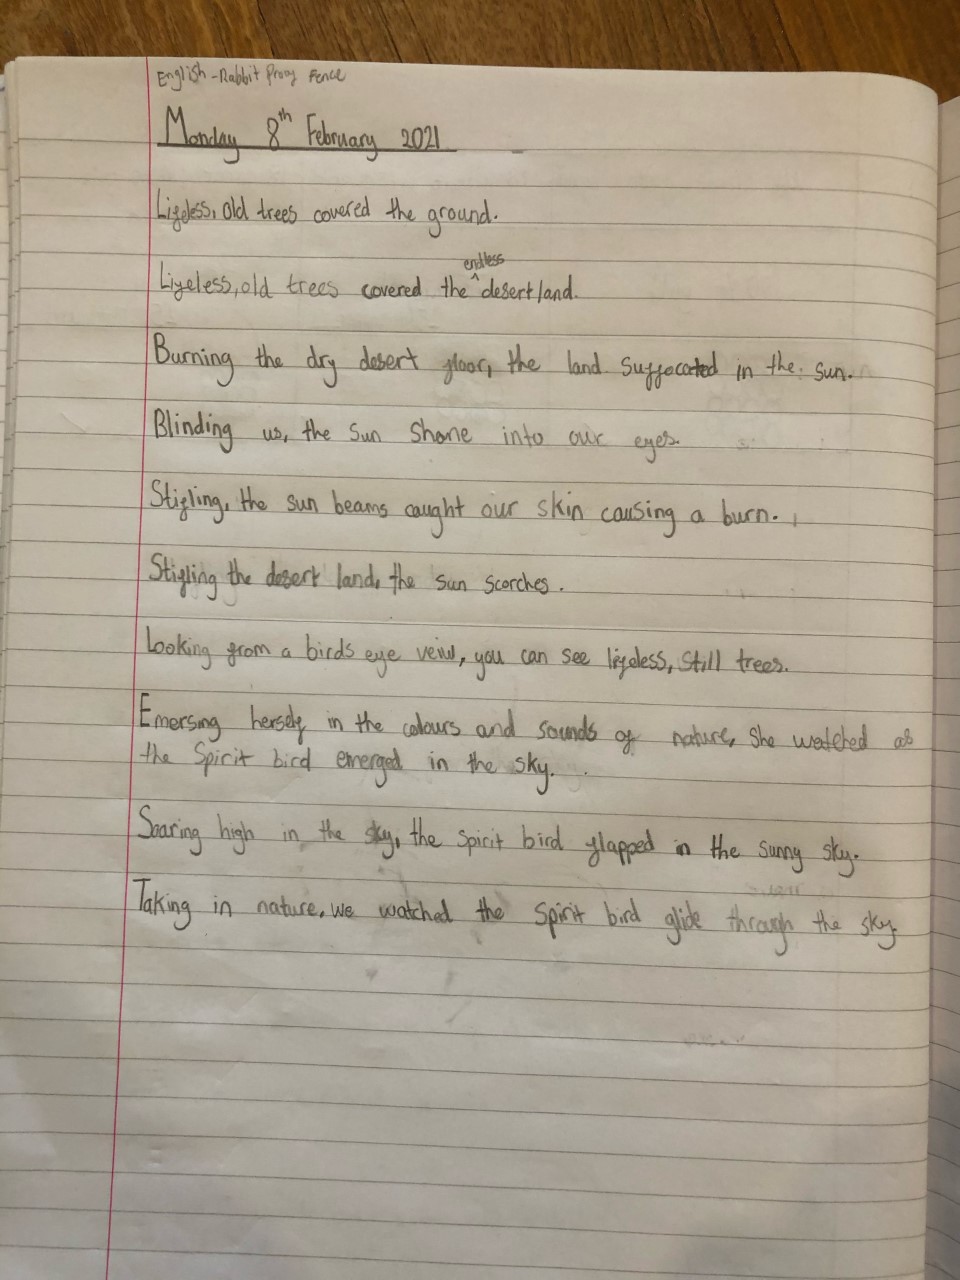 English - Rabbit Proof Fence
Monday 8th February 2021
Lifeless, old trees covered the ground.
Lifeless, old trees covered the ^endless desert land.
Burning the dry desert floor, the land suffocated in the sun.
Blinding us, the sun shone into our eyes.
Stifling, the sun beams caught our skin causing a burn.
Stifling the desert land, the sun scorches.
Looking from a birds eye veiw, you can see lifeless, still trees.
Emersing herself in the colours and sounds of nature, she watched as
the Spirit bird emerged in the sky.
Soaring high in the sky, the spirit bird flapped in the sunny sky.
Taking in nature, we watched the spirit bird glide through the sky.